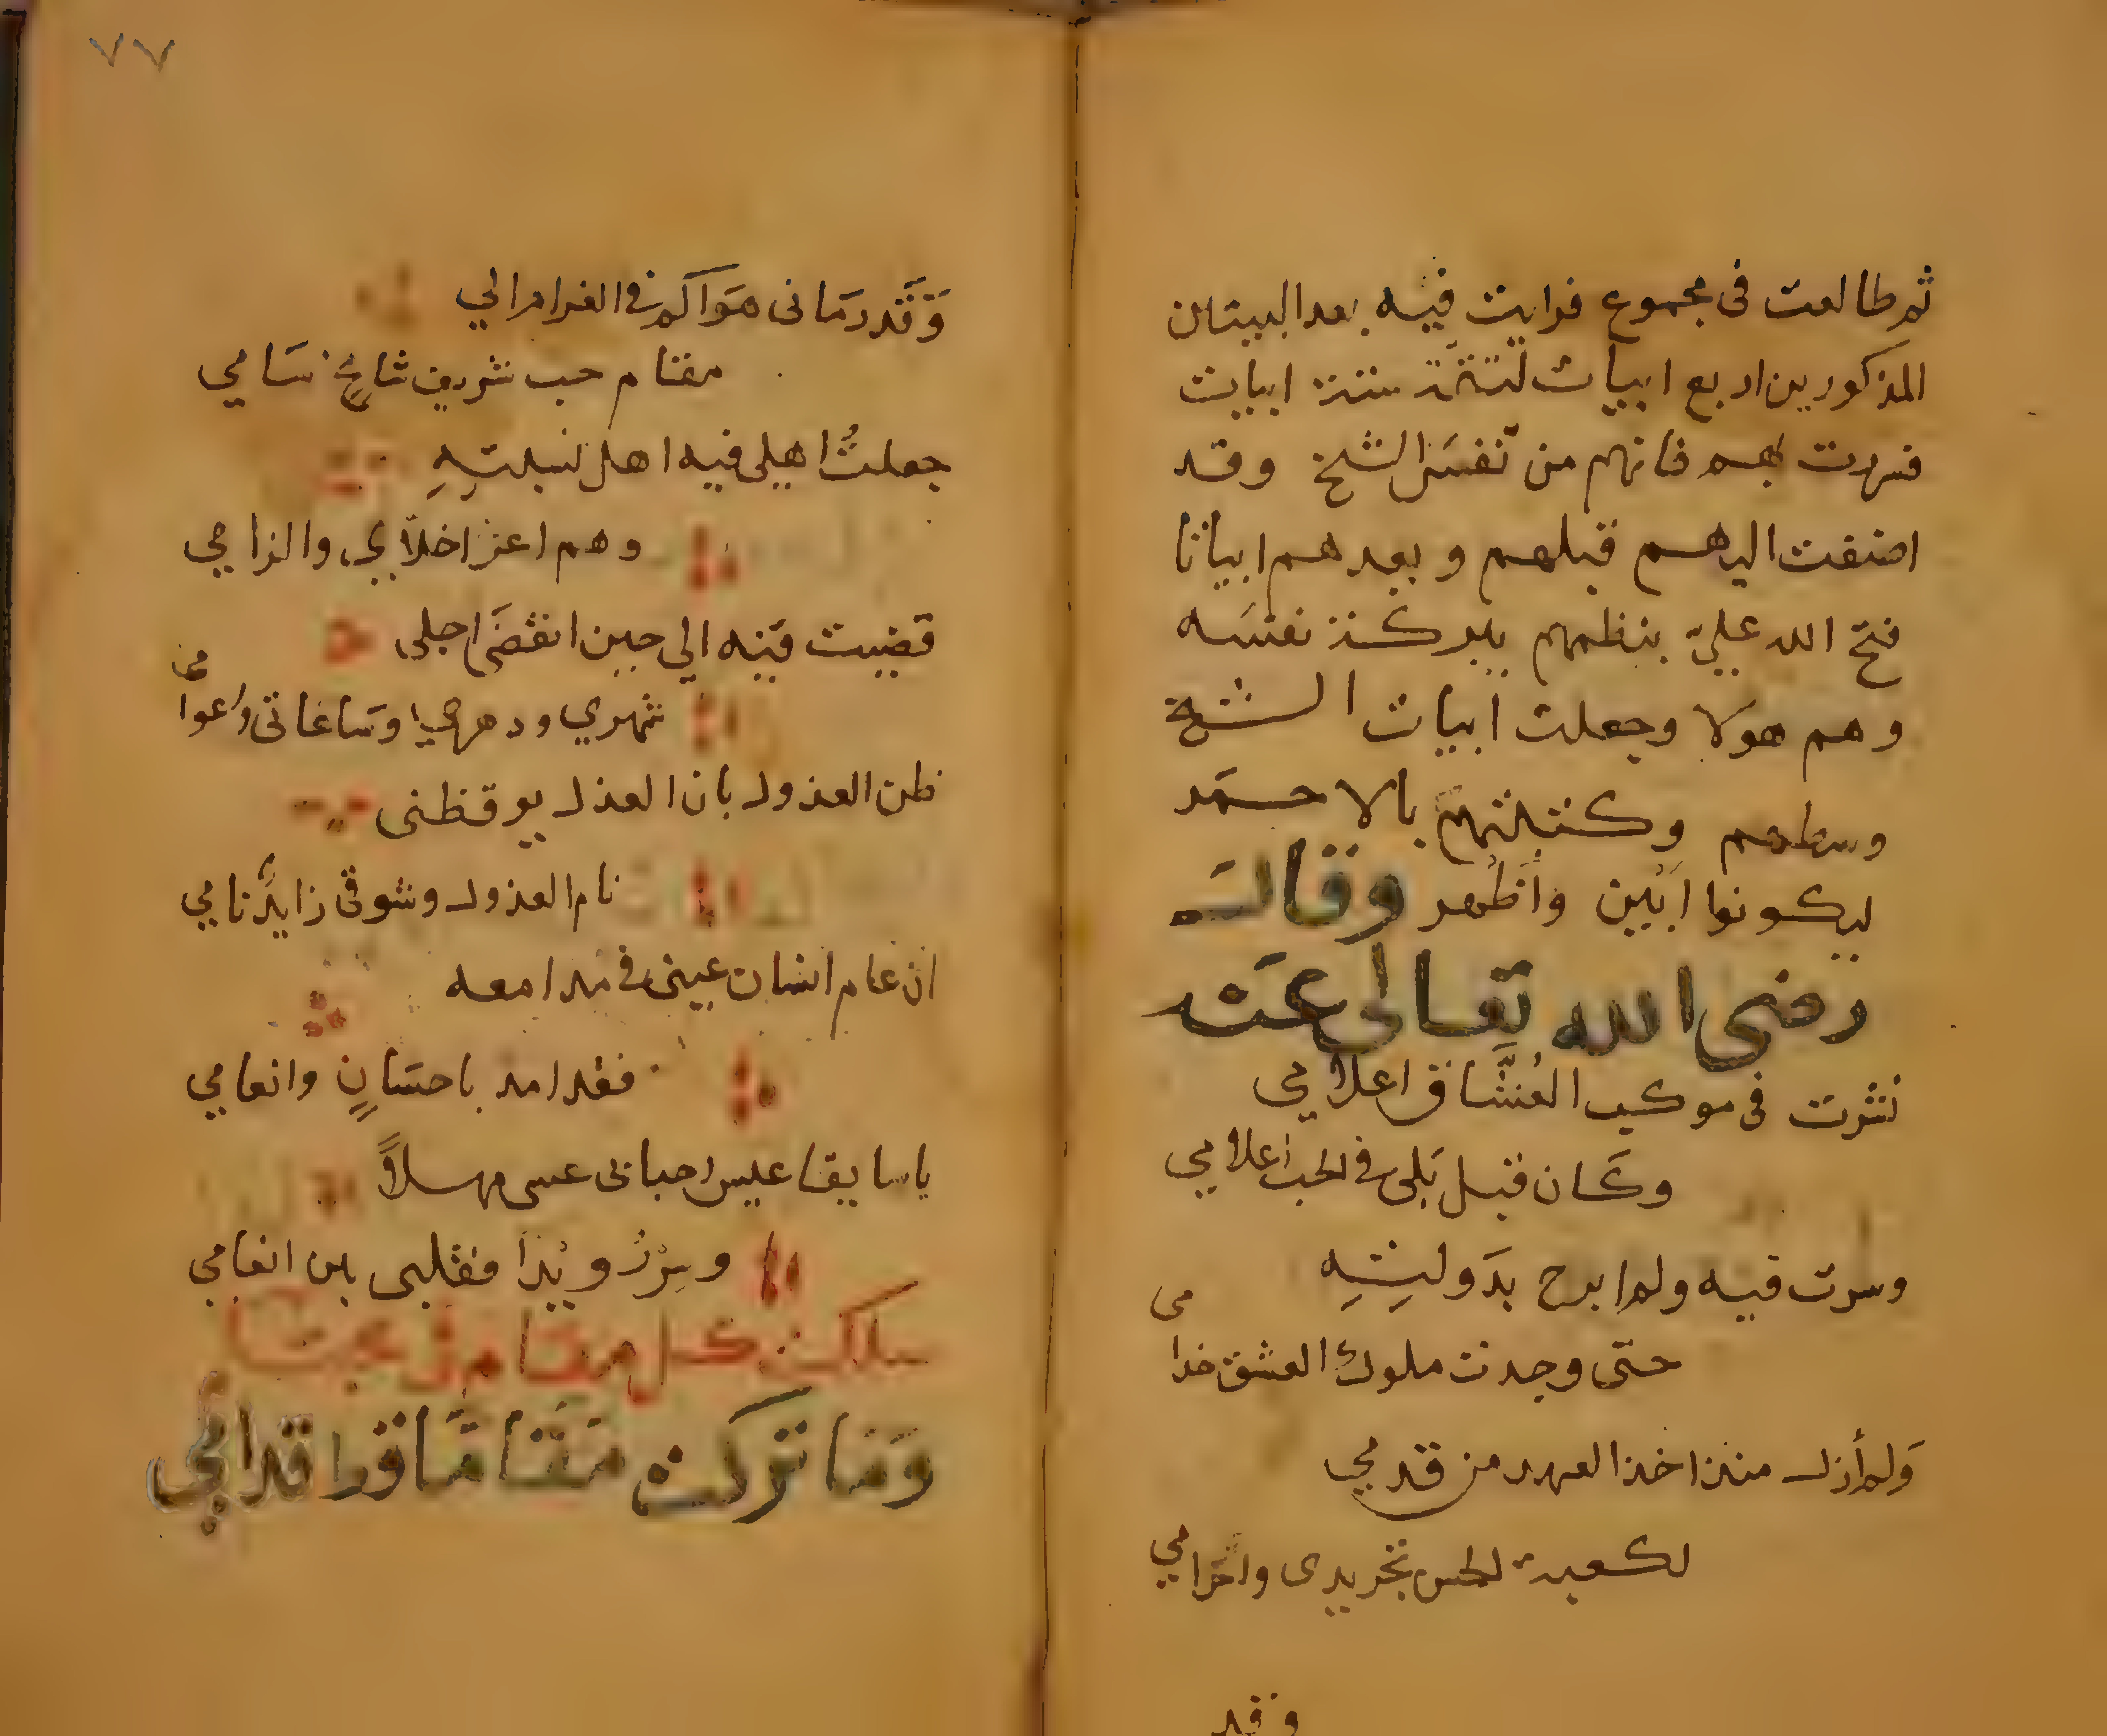 ثم طالعت فى مجموع فرايت فيه بعد البيتان
المذكورين اربع ابيات لتتمة ستة ابيات
فسررت بهم فانهم من نفس الشيخ وقد
اضفت اليهم قبلهم وبعدهم ابياتا
فتح الله عليّ بنظمهم ببركة نفسه
وهم هولا وجعلت ابيات الشيخ
وسطهم وكتبتهم بالاحمر
ليكونوا ابين واظهر وقال
رضى الله تعالى عنه
نشرت فى موكب العشّاق اعلامي
وكان قبل بلى فى الحب اعلامي
وسرت فيه ولم ابرح بدولتِهِ
حتى وجدت ملوك العشق خدامى
ولم أزل منذ اخذ العهد من قدمي
لكعبة الحسن تجريدى واحرامي
وقد
٧٧
وَقَد رمانى هواكم فى الغرام الي
مقام حب شريف شامخٍ سَامي
جعلتُ اهيلى فيه اهل نسبتِهِ
وهم اعز اخلّايي والزامي
قضيت فيه الي حين انقضى اجلى
شهري ودهري وساعاتى واعوامى
ظن العذول بان العذل يوقظنى
نام العذول وشوقى زايدٌ نامي
ان عام انسان عينى فى مدامعه
فقد امد باحسانٍ وانعامي
يا سايقا عيس احبابى عسى مهلاً
وسِرْ رويدا فقلبى بين انعامي
سلكت كل مقام فى محبتكم
وَمَا تركت مَقَامًا قط قدامي